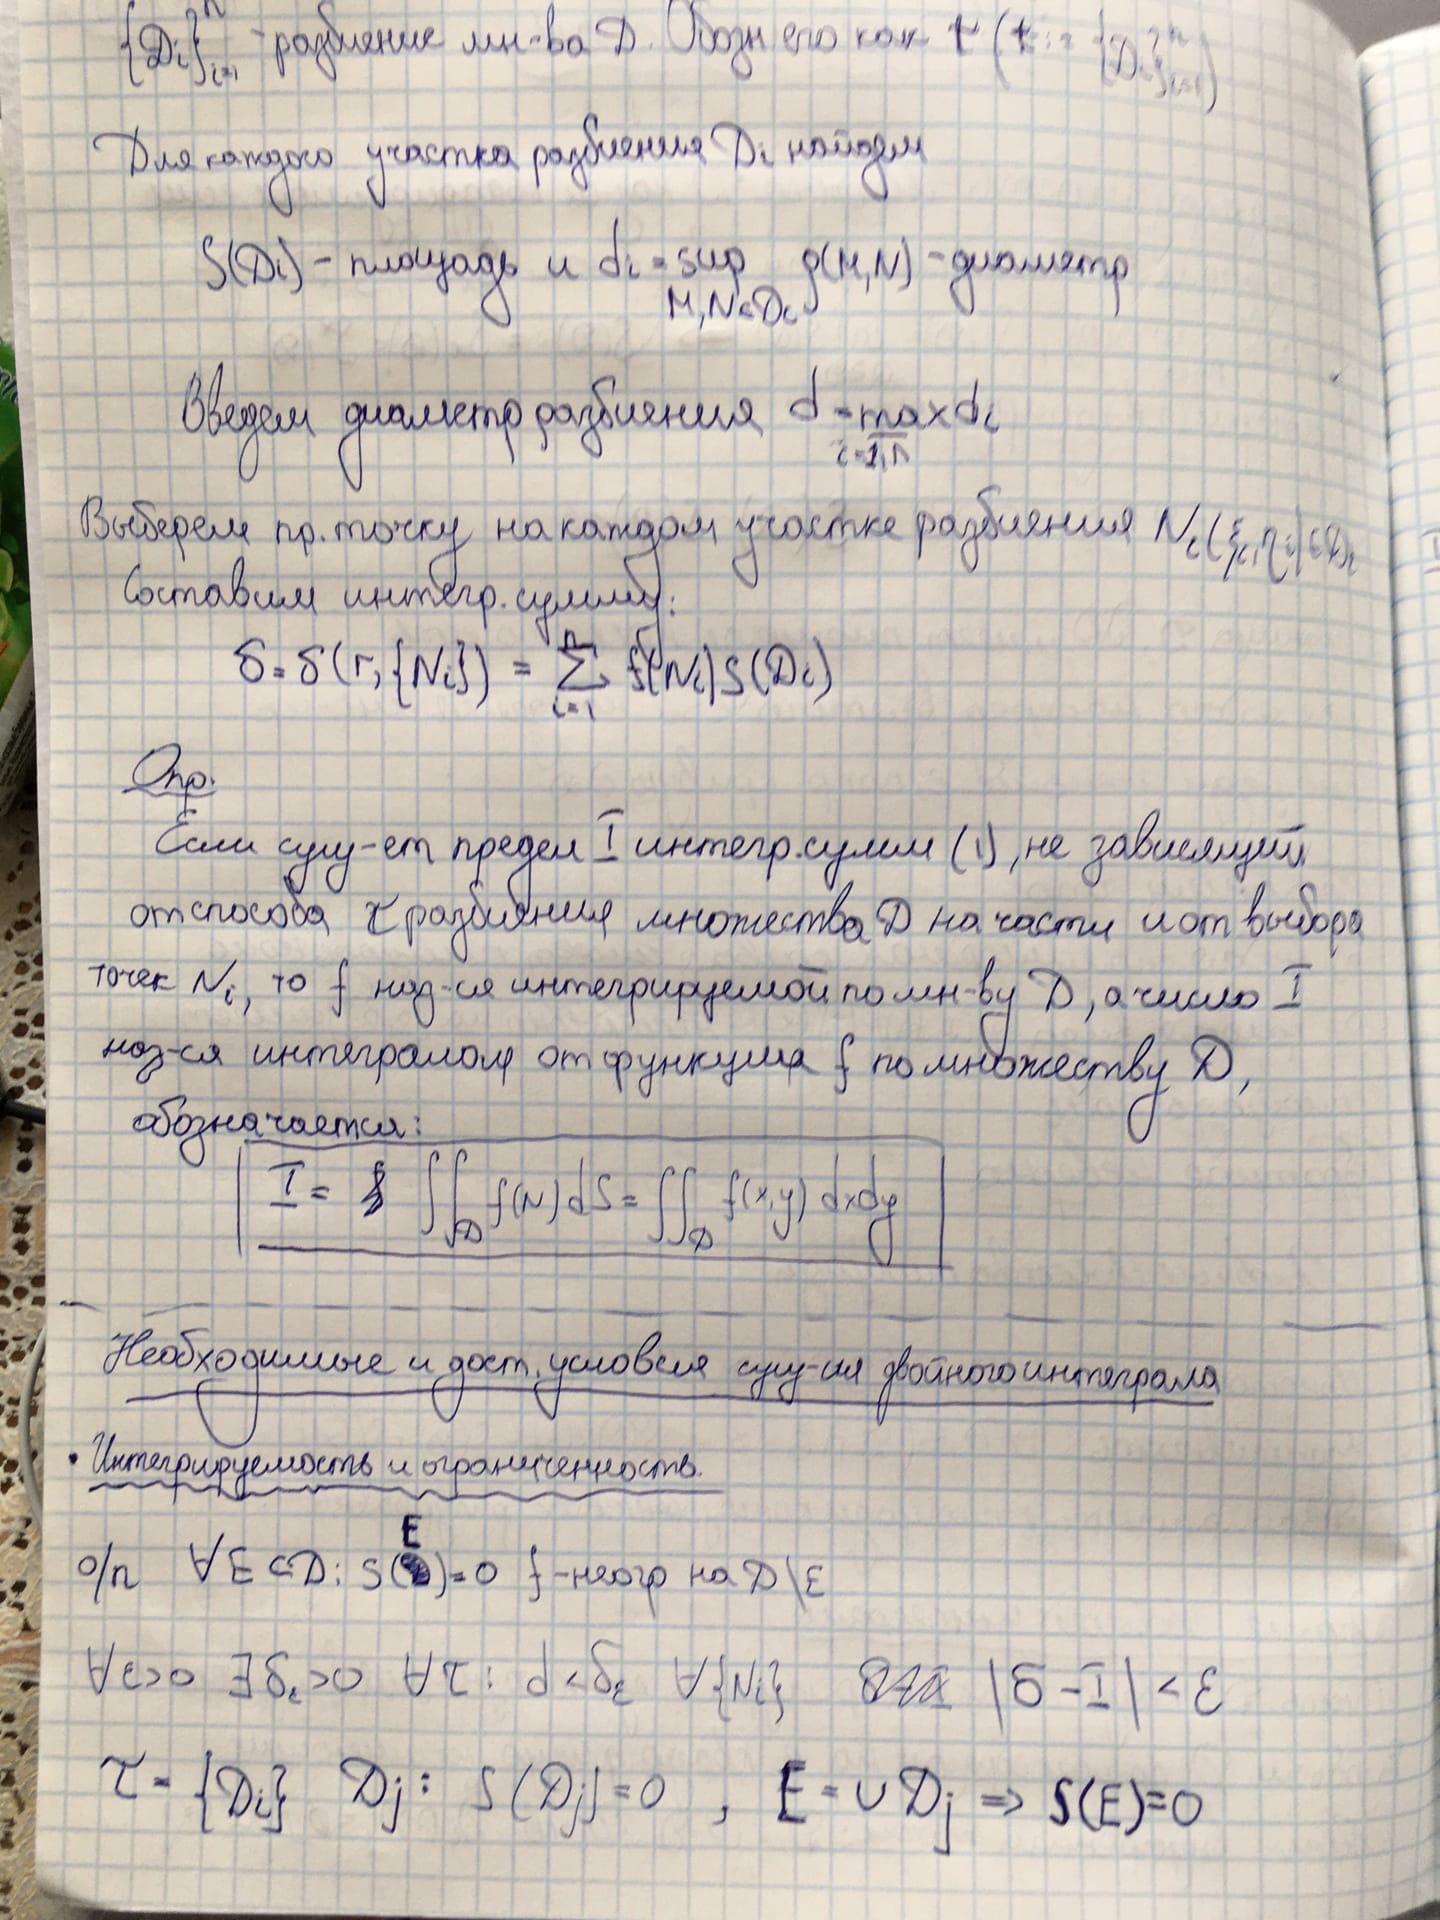 {Di}ⁿᵢ₌₁ - разбиение мн-ва D. Обозн его как τ (τ := {Di}ⁿᵢ₌₁)
Для каждого участка разбиения Di найдем
S(Di) - площадь и di = sup ρ(M,N) - диаметр
M,N∈Di
Введем диаметр разбиения d = max di
i=1,n
Выберем пр. точку на каждом участке разбиения Ni(ξi, ηi)∈Di
Составим интегр. сумму:
σ = σ(τ, {Ni}) = ∑ⁿᵢ₌₁ f(Ni)S(Di)
Опр.
Если сущ-ет предел I интегр. сумм (1), не зависящий
от способа τ разбиения множества D на части и от выбора
точек Ni, то f наз-ся интегрируемой по мн-ву D, а число I
наз-ся интегралом от функции f по множеству D,
обозначается:
I = ∬_D f(N)dS = ∬_D f(x,y) dxdy
Необходимые и дост. условия сущ-ия двойного интеграла
• Интегрируемость и ограниченность.
о/п ∀E⊂D: S(E)=0 f-неогр на D\E
∀ε>0 ∃δε>0 ∀τ: d<δε ∀{Ni} |σ-I|<ε
τ = {Di} Dj: S(Dj)=0, E = ∪Dj ⇒ S(E)=0